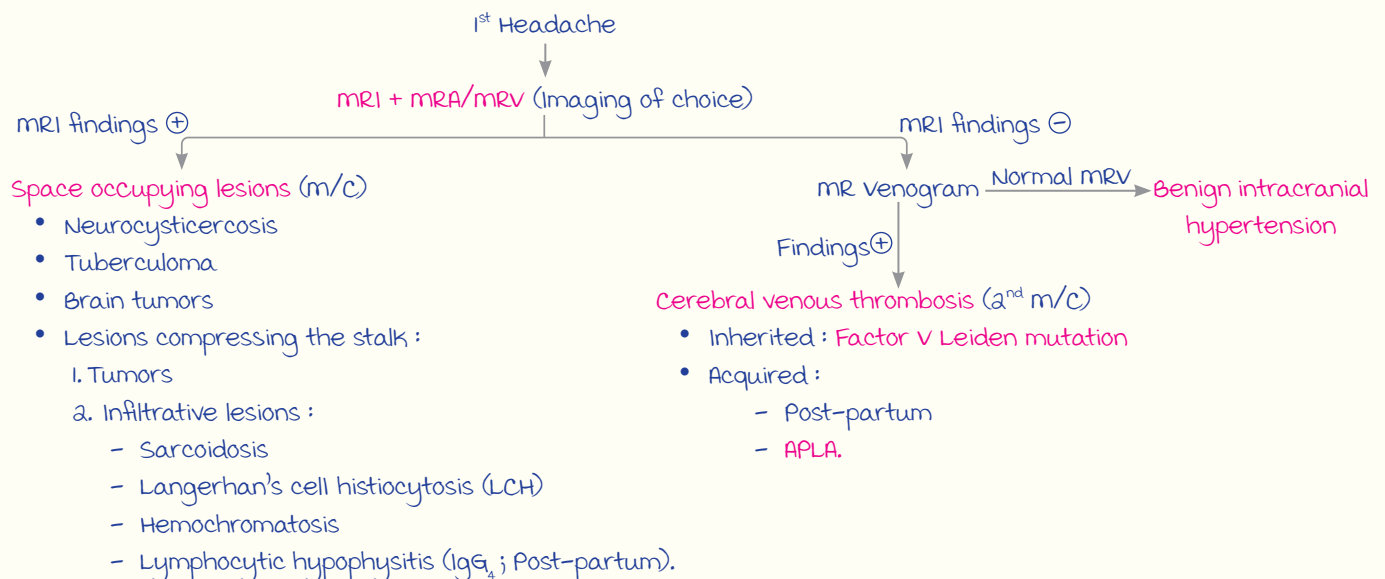 1st Headache
MRI + MRA/MRV (Imaging of choice)
MRI findings ⊕
MRI findings ⊖
Space occupying lesions (m/c)
• Neurocysticercosis
• Tuberculoma
• Brain tumors
• Lesions compressing the stalk :
1. Tumors
2. Infiltrative lesions :
- Sarcoidosis
- Langerhan's cell histiocytosis (LCH)
- Hemochromatosis
- Lymphocytic hypophysitis (IgG4 ; Post-partum).
MR venogram
Normal MRV
Benign intracranial
hypertension
Findings⊕
Cerebral venous thrombosis (2nd m/c)
• Inherited : Factor V Leiden mutation
• Acquired :
- Post-partum
- APLA.